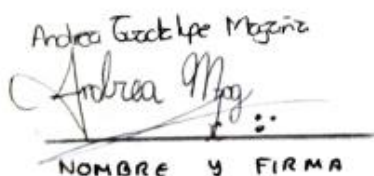 Andrea Guadalupe Magaña
Andrea Mag
NOMBRE Y FIRMA